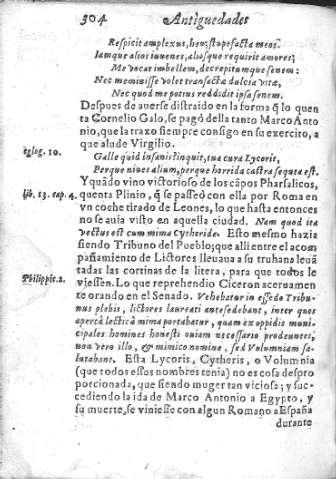 304 Antiguedades
Respicit amplexus, heu, stupefacta meos.
Iamque alios iuuenes, aliosque requirit amores;
Me vocat imbellem, decrepitumque senem:
Nec meminisse volet transacta dulcia vitæ,
Nec quod me potius reddidit ipsa senem.
Despues de auerse distraido en la forma q̃ lo quen
ta Cornelio Galo, se pagò desta tanto Marco Anto
nio, que la traxo siempre consigo en su exercito, a
que alude Virgilio.
eglog. 10. Galle quid insanis inquit, tua cura Lycoris,
Perque niues alium, perque horrida castra sequuta est.
Y quãdo vino victorioso de los cãpos Pharsalicos,
lib. 13. cap. 4. quenta Plinio, q̃ se passeò con ella por Roma en
vn coche tirado de Leones, lo que hasta entonces
no se auia visto en aquella ciudad. Nam quod ita
vectus est cum mima Cytheride. Esto mesmo hazia
siendo Tribuno del Pueblo; que alli entre el acom
pañamiento de Lictores lleuaua a su truhana leuã
tadas las cortinas de la litera, para que todos le
Philippic. 2. viessen. Lo que reprehendio Ciceron aceruamen
te orando en el Senado. Vehebatur in essedo Tribu-
nus plebis, lictores laureati antesedebant, inter quos
aperta lectica mima portabatur, quam ex oppidis muni-
cipales homines honesti obuiam necessario prodeuntes,
non vero illo, & mimico nomine, sed Volumniam sa-
lutabant. Esta Lycoris, Cytheris, o Volumnia
(que todos essos nombres tenia) no es cosa despro
porcionada, que siendo muger tan viciosa; y suc-
cediendo la ida de Marco Antonio a Egypto, y
su muerte, se viniesse con algun Romano a España
durante